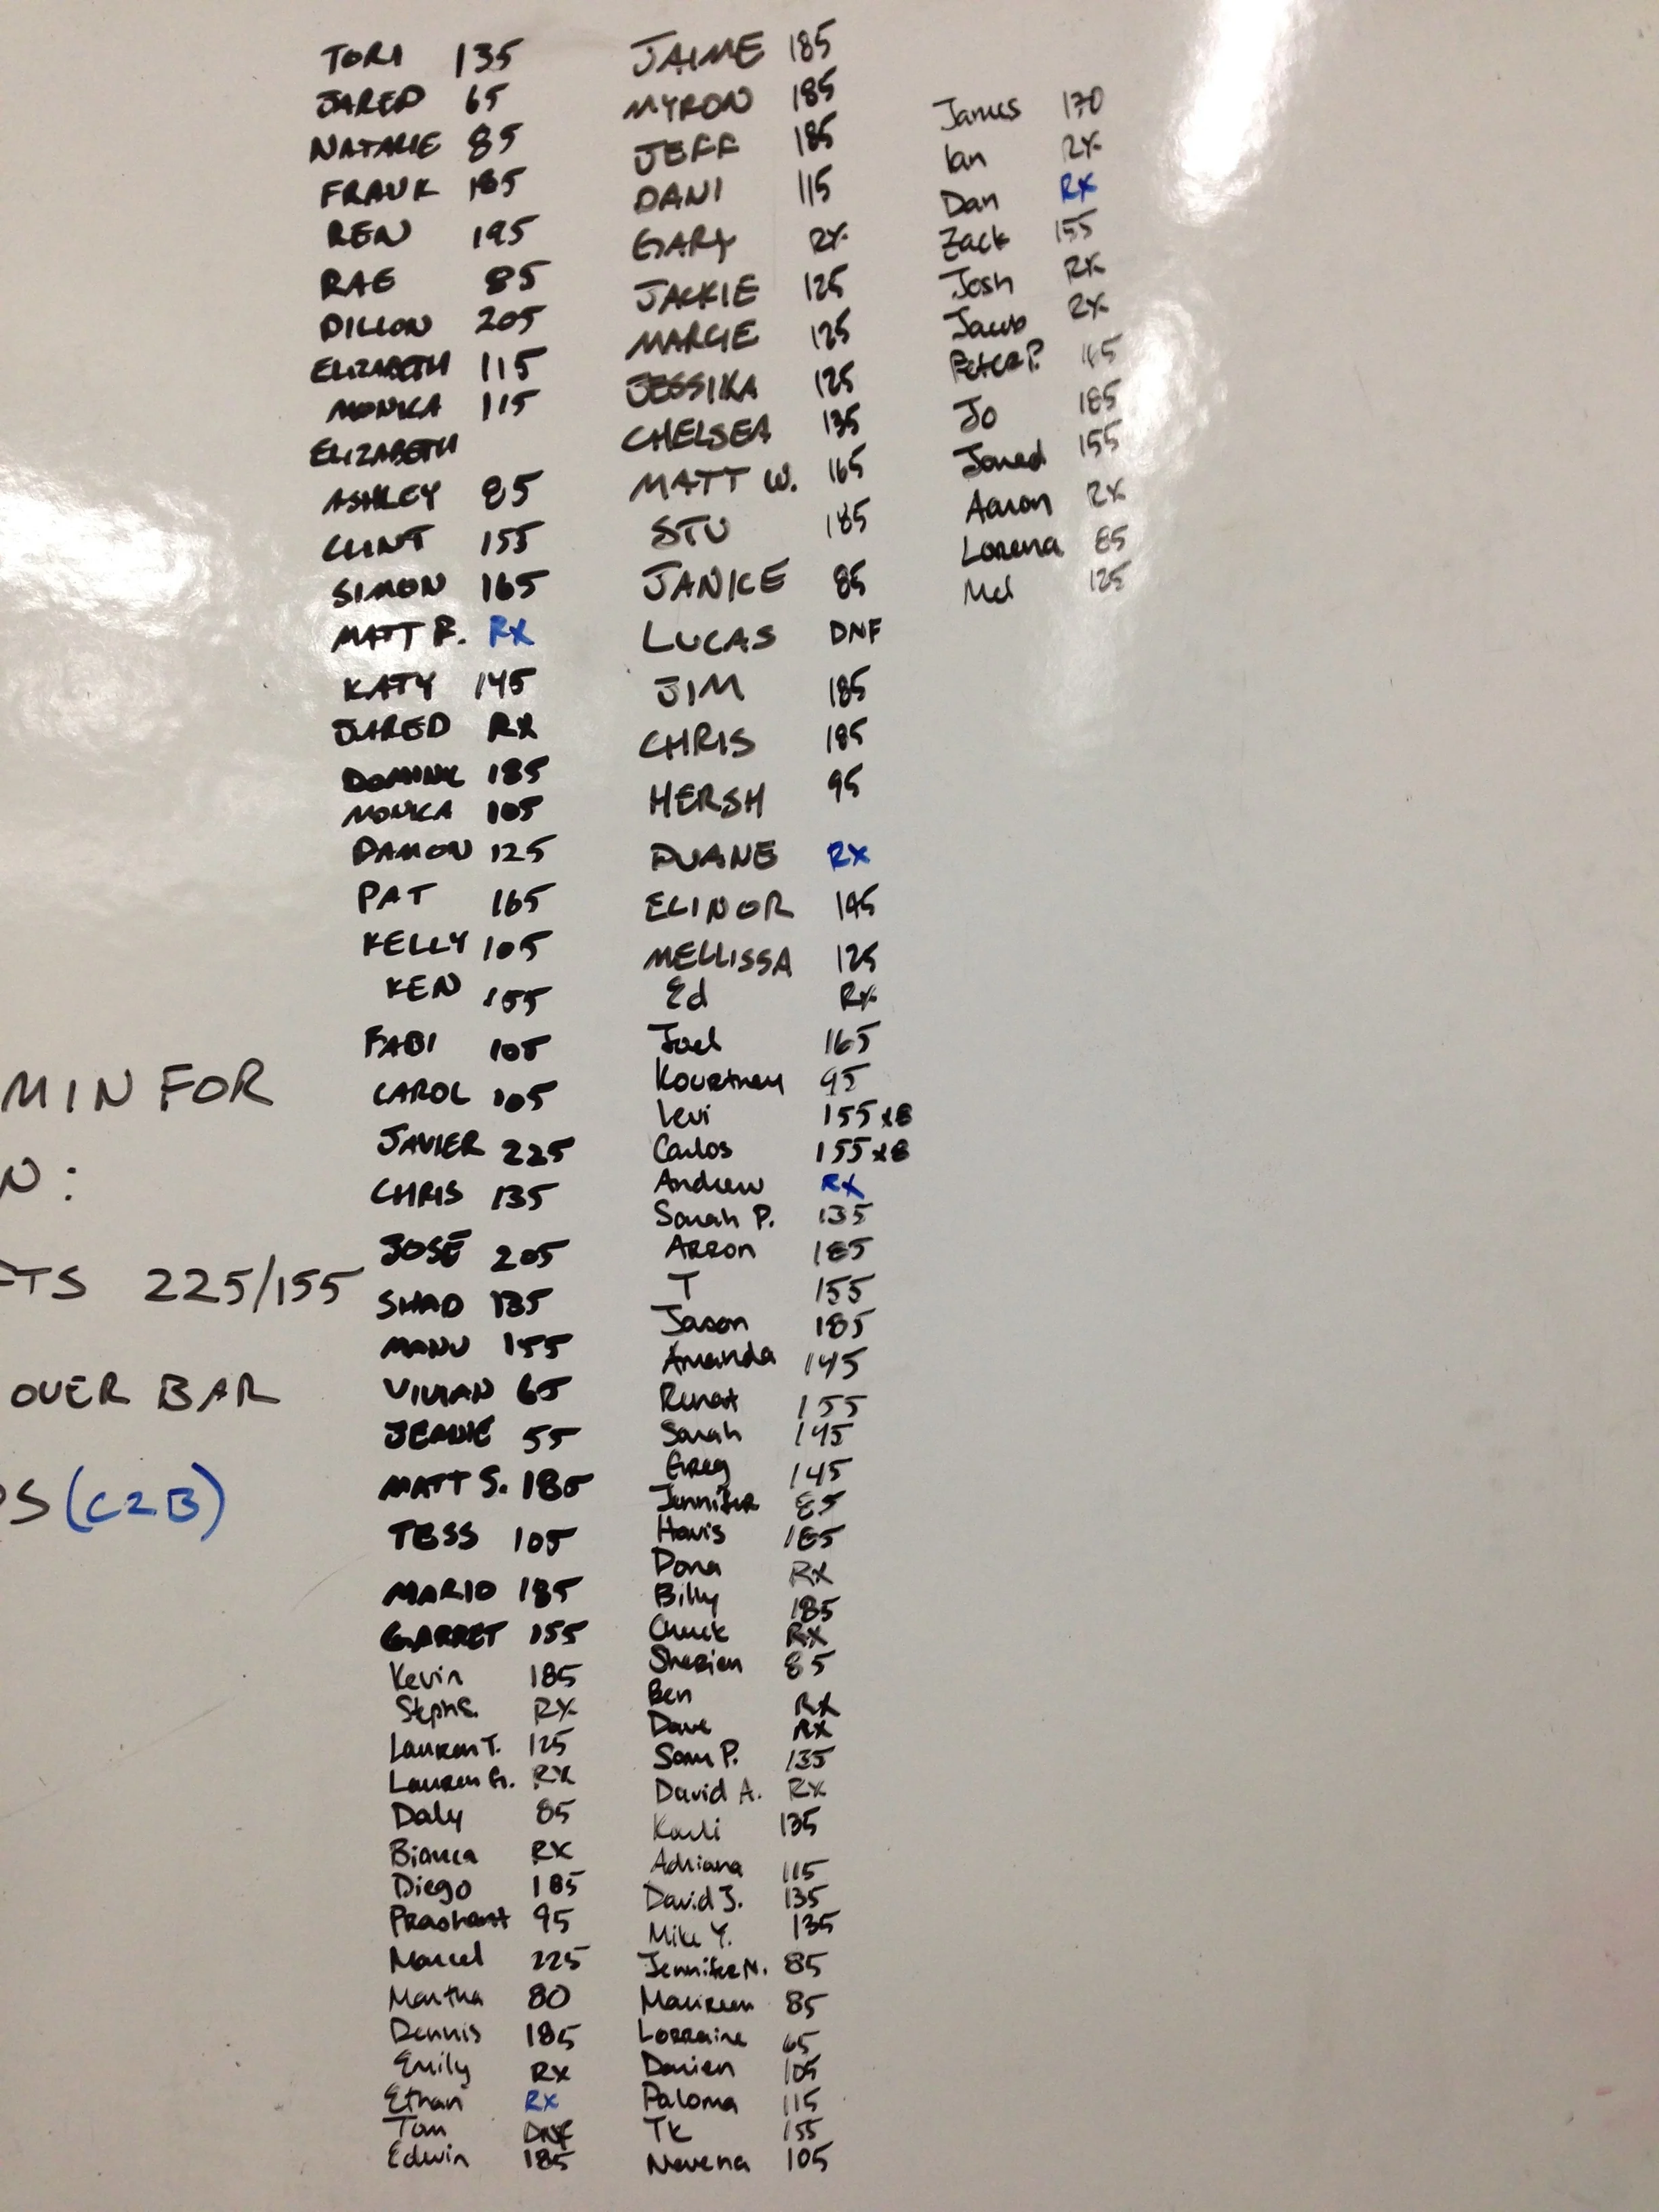 TORI 135
JARED 65
NATALIE 85
FRANK 185
REN 195
RAE 85
DILLON 205
ELIZABETH 115
MONICA 115
ELIZABETH
ASHLEY 85
CLINT 155
SIMON 165
MATT R. RX
KATY 145
JARED RX
DOMINIC 185
MONICA 105
DAMON 125
PAT 165
KELLY 105
KEN 155
FABI 105
CAROL 105
JAVIER 225
CHRIS 135
JOSÉ 205
SHAD 135
MANU 155
VIVIAN 65
JEANIE 55
MATT S. 185
TESS 105
MARIO 185
GARRET 155
Kevin 185
Steph S. RX
Lauren T. 125
Lauren G. RX
Daly 85
Bianca RX
Diego 185
Prashant 95
Marcel 225
Martha 80
Dennis 185
Emily RX
Ethan RX
Tom DNF
Edwin 185
MIN FOR
N:
FTS 225/155
OVER BAR
PS (C2B)
JAIME 185
MYRON 185
JEFF 185
DANI 115
GARY RX
JACKIE 125
MARGIE 125
JESSIKA 125
CHELSEA 135
MATT W. 165
STU 185
JANICE 85
LUCAS DNF
JIM 185
CHRIS 185
HERSH 95
DUANE RX
ELINOR 145
MELLISSA 125
Ed RX
Joel 165
Kourtney 95
Levi 155x8
Carlos 155x8
Andrew RX
Sarah P. 135
ARRON 185
T 155
Jason 185
Amanda 145
Renat 155
Sarah 145
Greg 145
Jennifer 85
Havis 185
Dona RX
Billy 185
Chuck RX
Sherien 85
Ben RX
Dave RX
Sam P. 135
David A. RX
Karli 135
Adriana 115
David J. 135
Mike Y. 135
Jennifer N. 85
Maureen 85
Lorraine 65
Darien 105
Paloma 115
TK 155
Nevena 105
James 170
Ian RX
Dan RX
Zack 155
Josh RX
Jacob RX
Peter P. 165
Jo 185
Jared 155
Aaron RX
Lorena 85
Mel 125